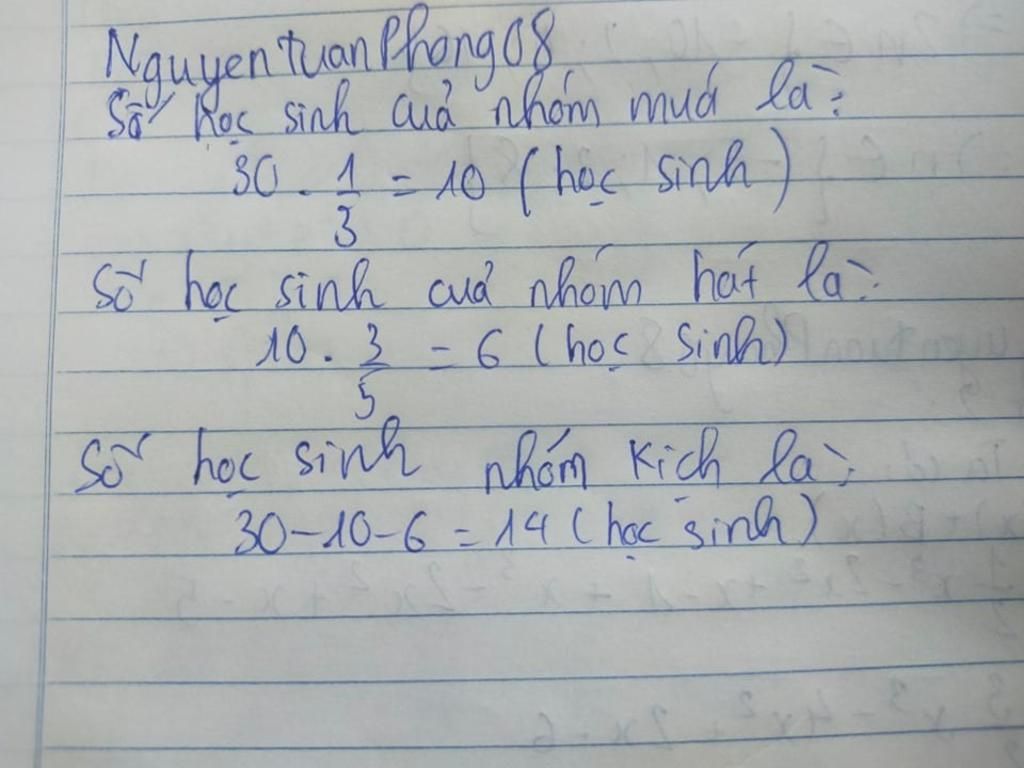 NguyentuanPhong08
Số học sinh cuả nhóm muá là:
30 . 1/3 = 10 (học sinh)
Số học sinh cuả nhóm hát là:
10 . 3/5 = 6 (học sinh)
Số học sinh nhóm kịch là:
30-10-6 = 14 (học sinh)